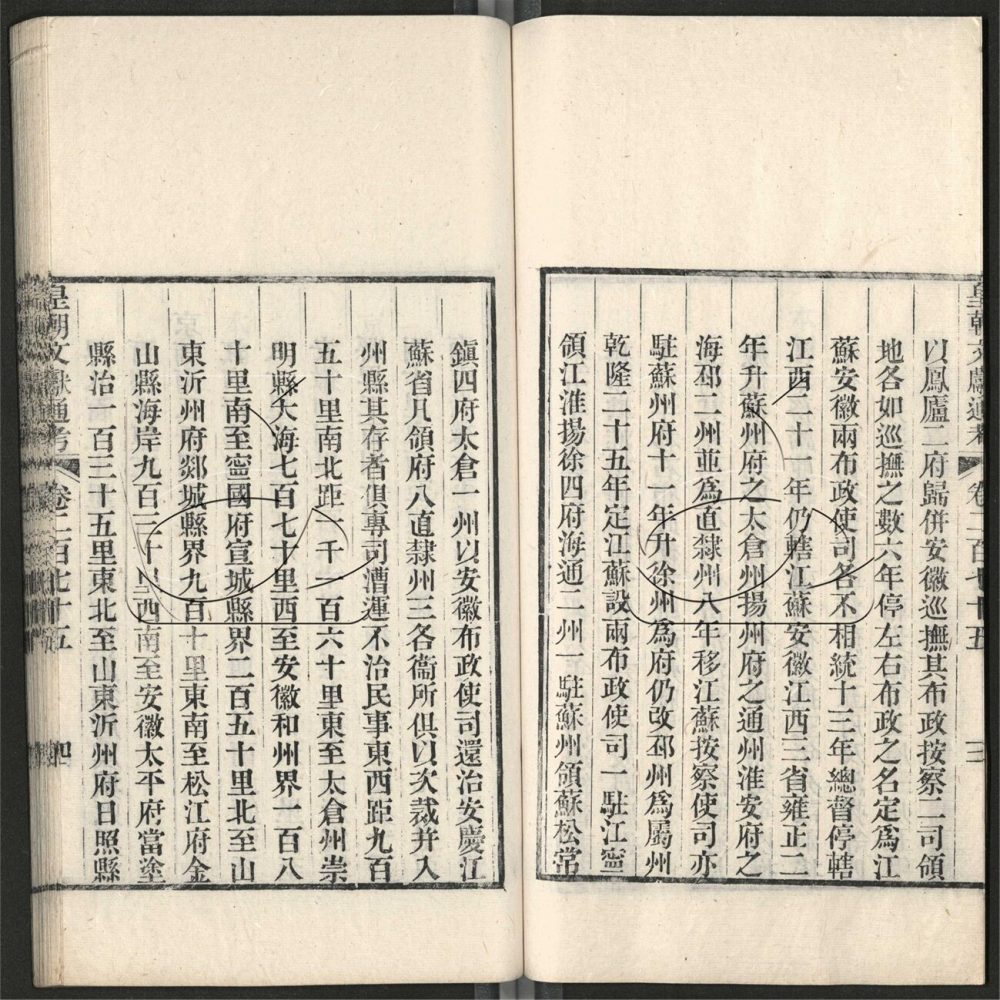 皇朝文獻通考 卷二百七十五 三
以鳳廬二府歸併安徽巡撫其布政按察二司領
地各如巡撫之數六年停左右布政之名定爲江
蘇安徽兩布政使司各不相統十三年總督停轄
江西二十一年仍轄江蘇安徽江西三省雍正二
年升蘇州府之太倉州揚州府之通州淮安府之
海邳二州並爲直隸州八年移江蘇按察使司亦
駐蘇州府十一年升徐州爲府仍改邳州爲屬州
乾隆二十五年定江蘇設兩布政使司一駐江寧
領江淮揚徐四府海通二州一駐蘇州領蘇松常
鎭四府太倉一州以安徽布政使司還治安慶江
蘇省凡領府八直隸州三各衞所俱以次裁并入
州縣其存者俱專司漕運不治民事東西距九百
五十里南北距一千一百六十里東至太倉州崇
明縣大海七百七十里西至安徽和州界一百八
十里南至寧國府宣城縣界二百五十里北至山
東沂州府郯城縣界九百十里東南至松江府金
山縣海岸九百二十里西南至安徽太平府當塗
縣治一百三十五里東北至山東沂州府日照縣
皇朝文獻通考 卷二百七十五 四